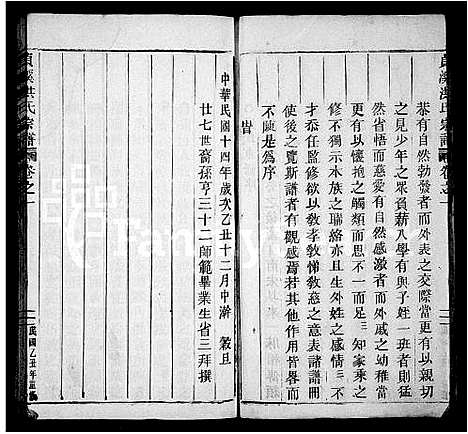 恭有自然勃發者而外表之交際當更有以親切
之見少年之眾員薪八學有與子姪一班者則猛
然省悟而慈愛有自然感激者而外戚之幼稚當
更有以懷抱之觸類而思不一而足三知家乘之
修不獨示本族之聯絡亦且生外姓之感情三不
才忝任監修欲以教孝教悌教慈之意表諸譜冊
使後之覽斯譜者有觀感焉若其他作用皆畧而
不陳是為序
旹
中華民國十四年歲次乙丑十二月中澣 穀旦
廿七世裔孫亨三十二師範畢業生省三拜撰
溪洪氏宗譜 卷之一
民國乙丑年